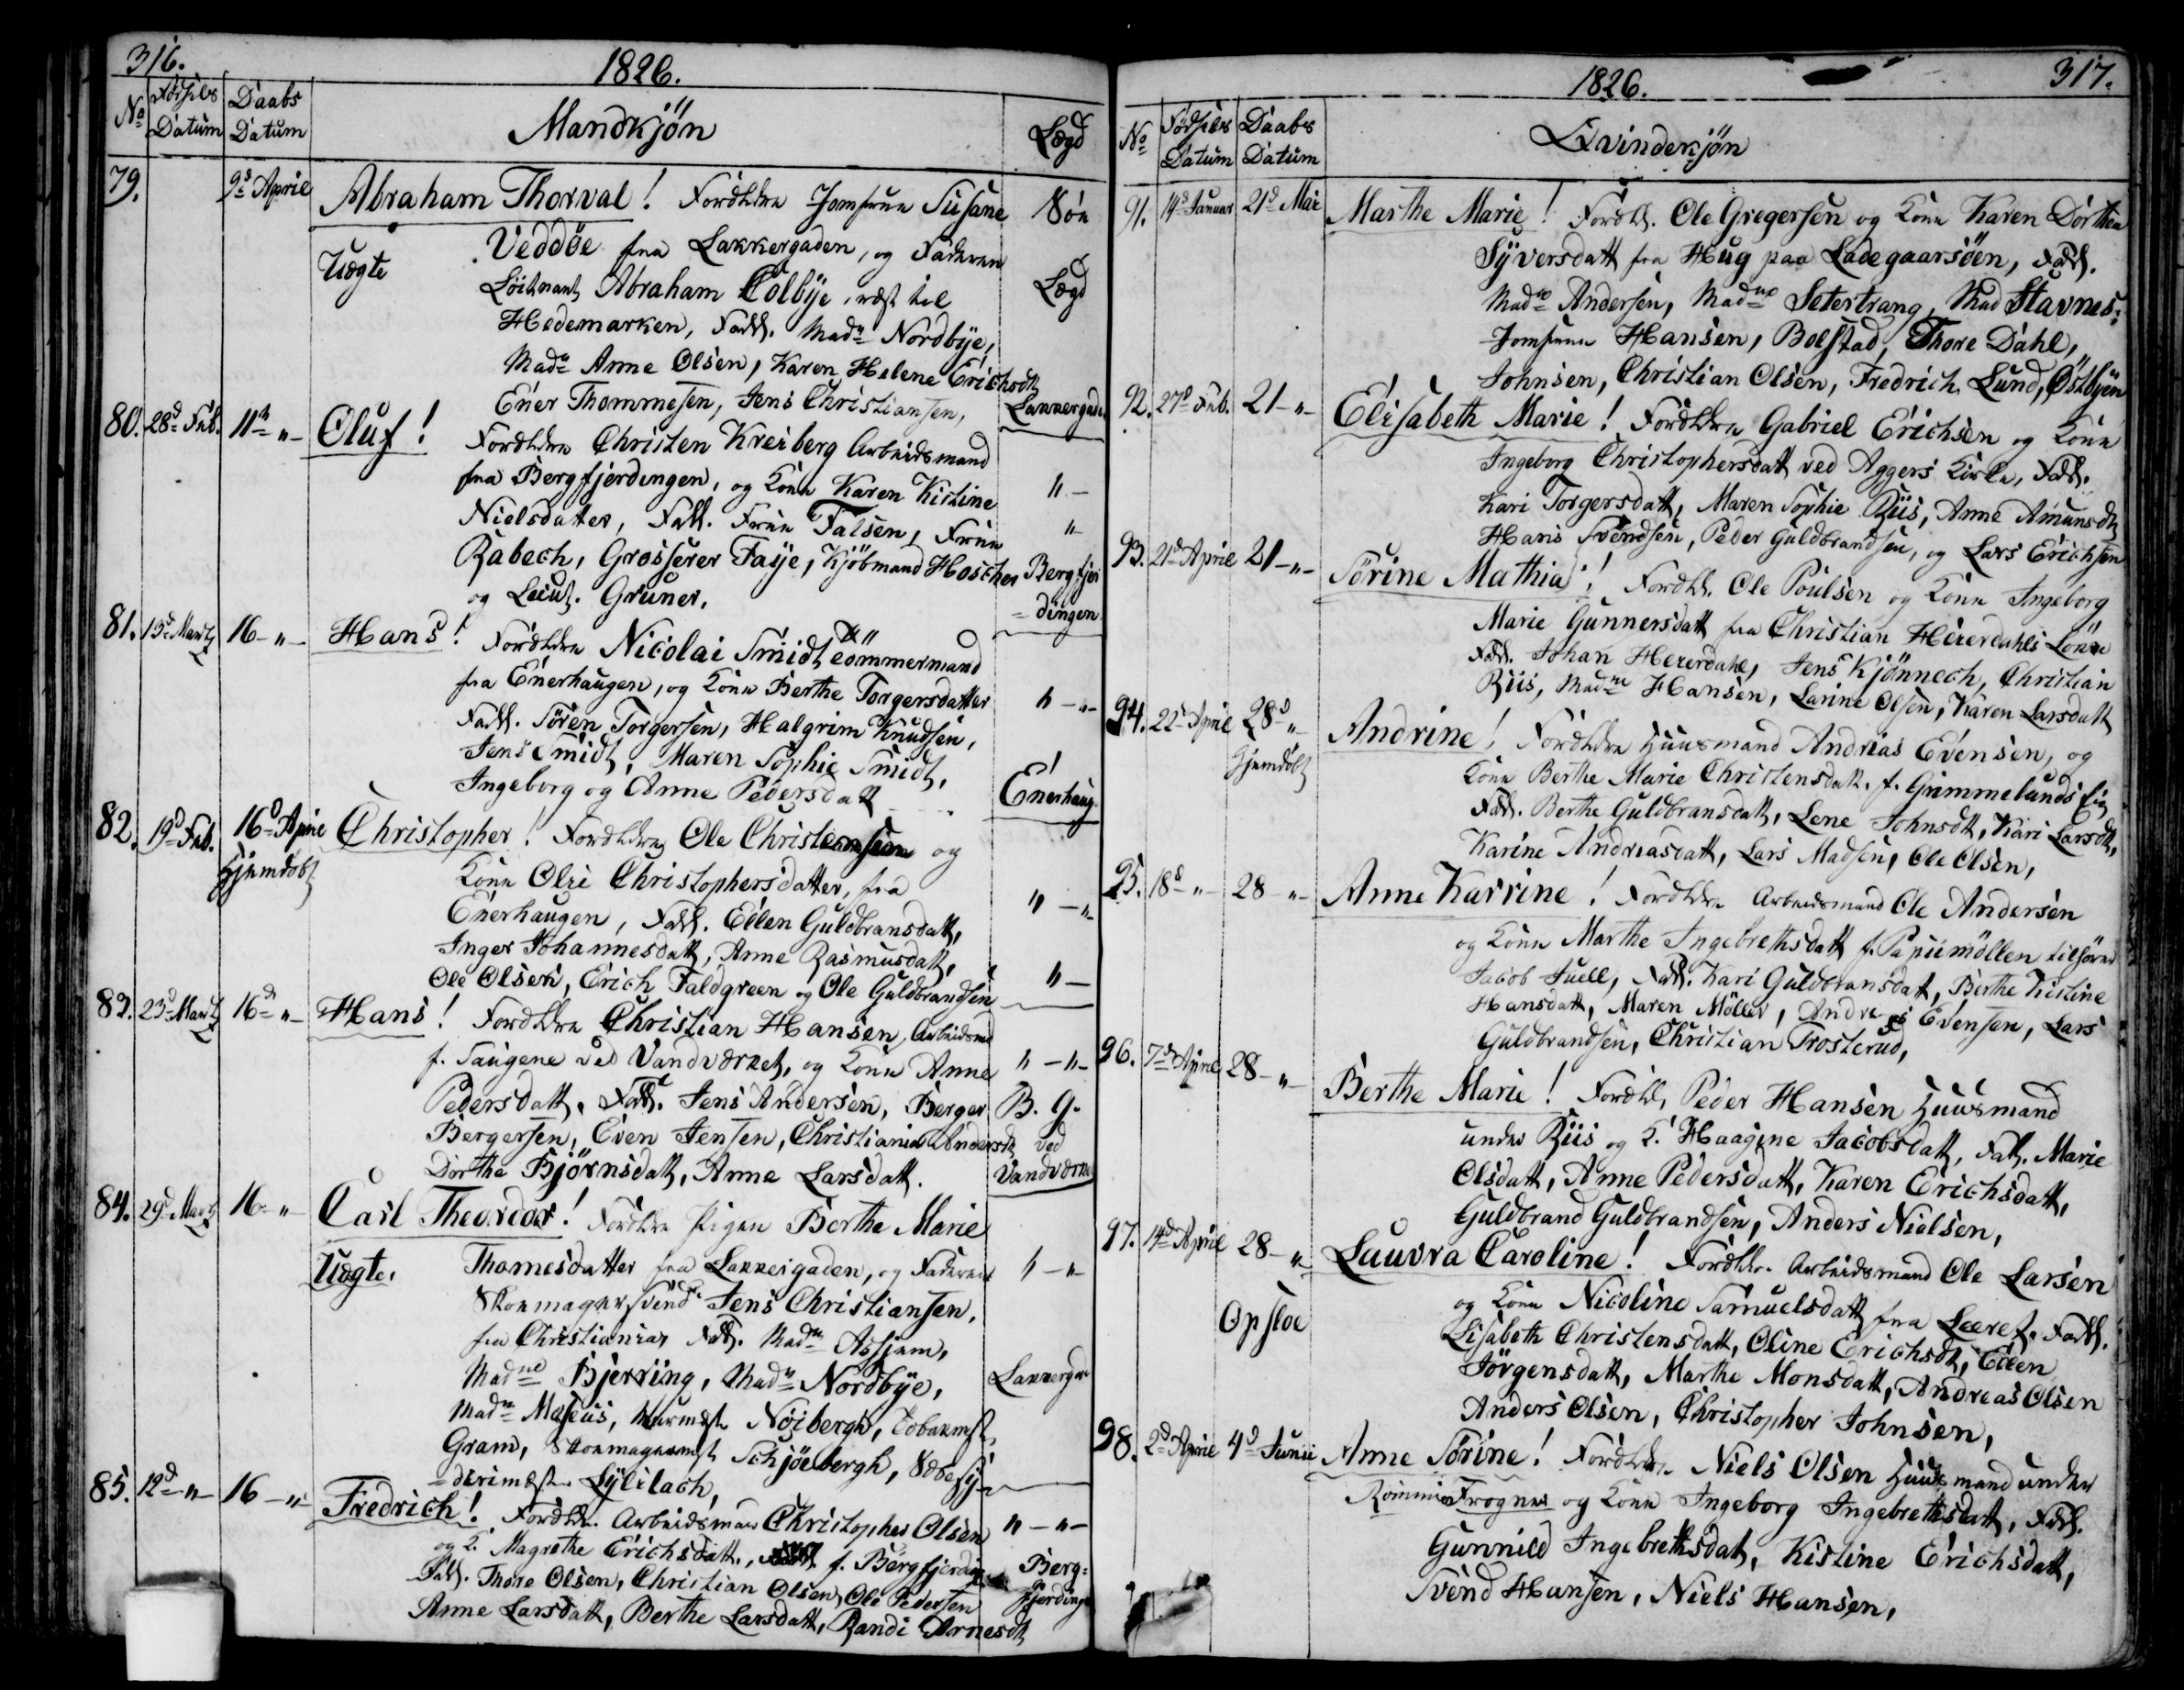 316.
1826.
No Fødsels Datum Daabs Datum Mandkjön Lægd
79. 9de April Abraham Thorval! Forældre Jomfrue Susane Søe
Uægte Veddöe fra Lakkergaden, og Faderen
Löitnant Abraham Colbÿe, rest til Lægd
Hedemarken, Fadd. Madme Nordbÿe,
Madme Anne Olsen, Karen Helene Erichsdtt
Ener Thommesen, Jens Christiansen, Lakkergade
80. 28d Feb. 11te " Oluf! Forældre Christen Kreiberg Arbeidsmand
fra Bergfjerdingen, og Kone Karen Kistine " -
Nielsdatter, Fadd. Frue Falsen, Frue "
Rabech, Grosserer Faÿe, Kjöbmand Hoscher Bergfjer
og Leeut. Gruner. =dingen
81. 13d Martz 16 - " - Hans! Forældre Nicolai Smidt Tömmermand
fra Enerhaugen, og Kone Berthe Torgersdatter " - " -
Fadd. Sören Torgersen, Halgrim Knudsen,
Jens Smidt, Maren Sophie Smidt,
Ingeborg og Anne Pedersdatt Enerhaug
82. 19d Feb. 16d April Christopher! Forældre Ole Christensen og
Hjemdöbt Kone Olie Christophersdatter, fra
Enerhaugen, Fadd. Ellen Guldbransdatt, " - " -
Inger Johannesdatt, Anne Rasmusdatt,
Ole Olsen, Erich Faldgreen og Ole Guldbrandsen " -
83. 23d Martz 16d " - Hans! Forældre Christian Hansen, Arbeidsmd
f. Saugene ved Vandværket, og Kone Anne " - " -
Pedersdatt. Fadd. Jens Andersen, Berger B. G.
Bergersen, Even Jensen, Christiania Andersdt, ved
Dorthe Bjørnsdatt, Anne Larsdatt. Vandværket
84. 29d Martz 16 - " Carl Theordor! Forældre Pigen Berthe Marie
Uægte. Thomesdatter fra Lakkergaden, og Faderen " - " -
Skomagersvend Jens Christiansen,
fra Christiania, Fadd. Madme Asjem,
Madme Bjerring, Madme Nordbÿe, Lakkergade
Madme Moseus, Murmest. Nöibergh, Tobakmst.
Gram, Skomagermst Schjöebergh, Sæbesÿ-
=derimest. Sÿlilach,
85. 12d " - 16 - " - Fredrich! Forældre. Arbeidsman Christopher Olsen " - " -
og K. Magrethe Erichsdatt., f. Bergfjerding Berg=
Fadd. Thore Olsen, Christian Olsen, Ole Pedersen fjerding
Anne Larsdatt, Berthe Larsdatt, Randi Arnesdt
1826.
317.
No Fødsels Datum Daabs Datum Qvindekjön
91. 14d Januar 21d Mai Marthe Marie! Foreld. Ole Gregersen og Kone Karen Dorthea
Sÿversdatt fra Hug paa Ladegaarsöen, Fadd.
Madme Andersen, Madme Setertrang, Mad Stavnes:
Jomfrue Hansen, Bolstad, Thore Dahl,
Johnsen, Christian Olsen, Fredrich Lund, Östbÿen
92. 27d Feb. 21 - " - Elisabeth Marie! Forældre Gabriel Erichsen og Kone
Ingeborg Christophersdatt ved Aggers Kirke, Fadd.
Kari Torgersdatt, Maren Sophie Riis, Anne Amunsdt,
Hans Svendsen, Peder Guldbrandsen, og Lars Erichsen
93. 21d April 21 - " - Sörine Mathia! Foreld. Ole Poulsen og Kone Ingeborg
Marie Gunnersdatt fra Christian Hererdahls Lökke
Fadd. Johan Hererdahl, Jens Kjönnech, Christian
Riis, Madme Hansen, Larine Olsen, Karen Larsdatt
94. 22d April 28d " Andrine! Forældre Huusmand Andrias Evensen, og
Hjemdöbt Kone Berthe Marie Christensdatt. f. Grimmelunds Eie
Fadd. Berthe Guldbransdatt, Lene Johnsdt, Kari Larsdt,
Karine Andreasdatt, Lars Madsen, Ole Olsen,
95. 18d " - 28 - " - Anne Karrine! Forældre Arbeidsmand Ole Andersen
og Kone Marthe Ingebrethsdatt f. Papiimöllen tilhörer
Jacob Juell, Fadd. Kari Guldbransdatt, Berthe Kistine
Hansdatt, Maren Möller, Andreas Evensen, Lars
Guldbrandsen, Christian Trosterud,
96. 7d April 28 - " - Berthe Marie! Foreld. Peder Hansen Huusmand
under Riis og K. Haagine Jacobsdatt, Fadd. Marie
Olsdatt, Anne Pedersdatt, Karen Erichsdatt,
Guldbrand Guldbrandsen, Anders Nielsen,
97. 14d April 28 - " Lauvra Caroline! Forældr. Arbeidsmand Ole Larsen
Opsloe og Kone Nicoline Samuelsdatt fra Leeret. Fadd.
Lisabeth Christensdatt, Oline Erichsdt, Ellen
Jörgensdatt, Marthe Monsdatt, Andreas Olsen
Anders Olsen, Christopher Johnsen,
98. 2d April 4d Junii Anne Sörine! Forældre Niels Olsen Huusmand under
Frogner og Kone Ingeborg Ingebrethsdatt, Fadd.
Gunnild Ingebrethsdatt, Kistine Erichsdatt,
Svend Hansen, Niels Hansen,